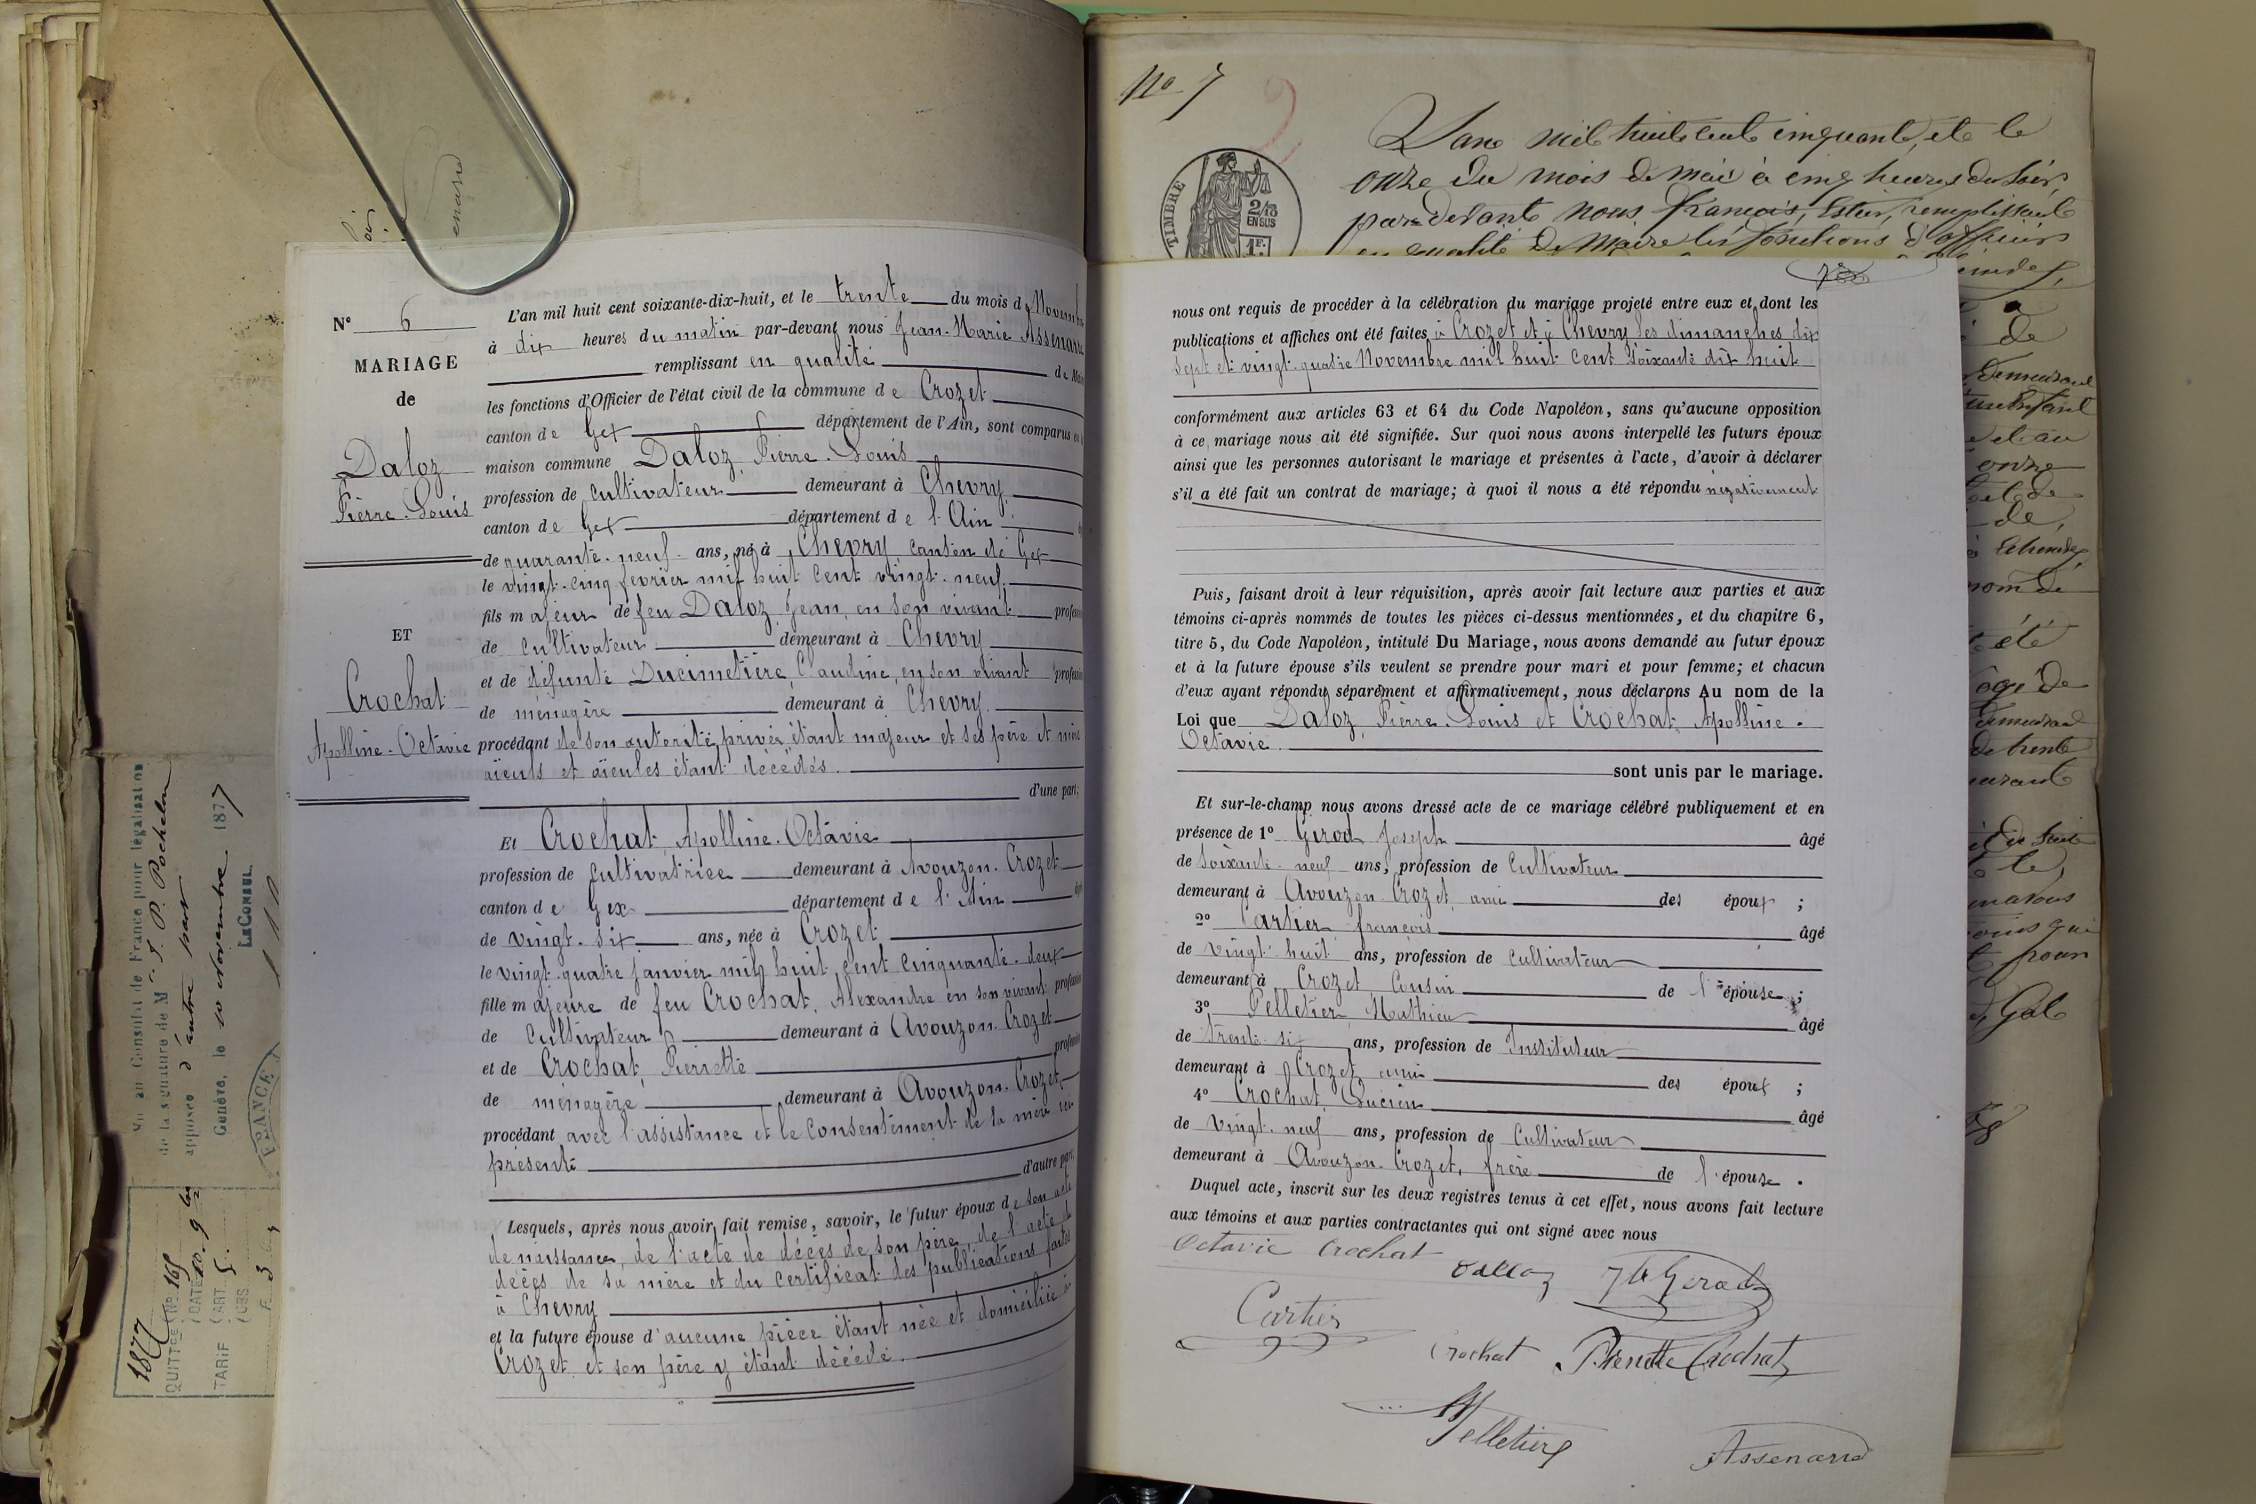 N° 6
MARIAGE
de
Daloz
Pierre-Louis
ET
Crochat
Apolline-Octavie
L'an mil huit cent soixante-dix-huit, et le trente du mois d
à dix heures du matin par-devant nous Jean-Marie Assenard
remplissant en qualité de
les fonctions d'Officier de l'état civil de la commune de Crozet
canton de Gex département de l'Ain, sont comparus
maison commune Daloz, Pierre-Louis
profession de cultivateur demeurant à Chevry
canton de Gex département de l'Ain
de quarante-neuf ans, né à Chevry canton de Gex
le vingt-cinq fevrier mil huit cent vingt-neuf.
fils majeur de feu Daloz, Jean, en son vivant
de cultivateur demeurant à Chevry
et de défunte Ducimetière, Claudine, en son vivant
de ménagère demeurant à Chevry.
procédant de son autorité privée, étant majeur et ses père et mère
aïeuls et aïeules étant décédés.
d'une part;
Et Crochat, Apolline-Octavie
profession de cultivatrice demeurant à Avouzon-Crozet
canton de Gex département de l'Ain
de vingt-six ans, née à Crozet
le vingt-quatre janvier mil huit cent cinquante-deux
fille majeure de feu Crochat, Alexandre en son vivant
de cultivateur demeurant à Avouzon-Crozet
et de Crochat, Pierrette
de ménagère demeurant à Avouzon-Crozet,
procédant avec l'assistance et le consentement de la mère ici
présente
d'autre part;
Lesquels, après nous avoir fait remise, savoir, le futur époux de son acte
de naissance, de l'acte de décès de son père, de l'acte de
décès de sa mère et du certificat des publications faites
à Chevry
et la future épouse d'aucune pièce étant née et domiciliée à
Crozet et son père y étant décédé.
nous ont requis de procéder à la célébration du mariage projeté entre eux et dont les
publications et affiches ont été faites à Crozet et à Chevry les dimanches dix
sept et vingt-quatre Novembre mil huit cent soixante dix huit
conformément aux articles 63 et 64 du Code Napoléon, sans qu'aucune opposition
à ce mariage nous ait été signifiée. Sur quoi nous avons interpellé les futurs époux
ainsi que les personnes autorisant le mariage et présentes à l'acte, d'avoir à déclarer
s'il a été fait un contrat de mariage; à quoi il nous a été répondu négativement
Puis, faisant droit à leur réquisition, après avoir fait lecture aux parties et aux
témoins ci-après nommés de toutes les pièces ci-dessus mentionnées, et du chapitre 6,
titre 5, du Code Napoléon, intitulé Du Mariage, nous avons demandé au futur époux
et à la future épouse s'ils veulent se prendre pour mari et pour femme; et chacun
d'eux ayant répondu séparément et affirmativement, nous déclarons Au nom de la
Loi que Daloz, Pierre-Louis et Crochat, Apolline-
Octavie
sont unis par le mariage.
Et sur-le-champ nous avons dressé acte de ce mariage célébré publiquement et en
présence de 1° Girod Joseph âgé
de soixante-neuf ans, profession de cultivateur
demeurant à Avouzon-Crozet, ami des époux ;
2° Cartier françois âgé
de vingt-huit ans, profession de cultivateur
demeurant à Crozet, Cousin de l'épouse ;
3° Pelletier, Mathieu âgé
de trente-six ans, profession de Instituteur
demeurant à Crozet, ami des époux ;
4° Crochat, Lucien âgé
de vingt-neuf ans, profession de Cultivateur
demeurant à Avouzon-Crozet, frère de l'épouse .
Duquel acte, inscrit sur les deux registres tenus à cet effet, nous avons fait lecture
aux témoins et aux parties contractantes qui ont signé avec nous
Octavie Crochat
Dalloz
Girod
Cartier
Crochat
Pierrette Crochat
Pelletier
Assenard
N° 7
L'an mil huit cent cinquante, et le
onze du mois de mai à cinq heures du soir,
par devant nous françois,
en qualité de Maire les fonctions d'officier
TIMBRE
2/10
EN SUS
1F.
Vu au Consulat de France pour légalisation
de la signature de M J. P. Rochelon
apposée d'autre part
Genève, le 10 Novembre 1877
Le Consul.
FRANCE
1877
QUITTCE No 165
DATE 10. 9
TARIF ART. 5.